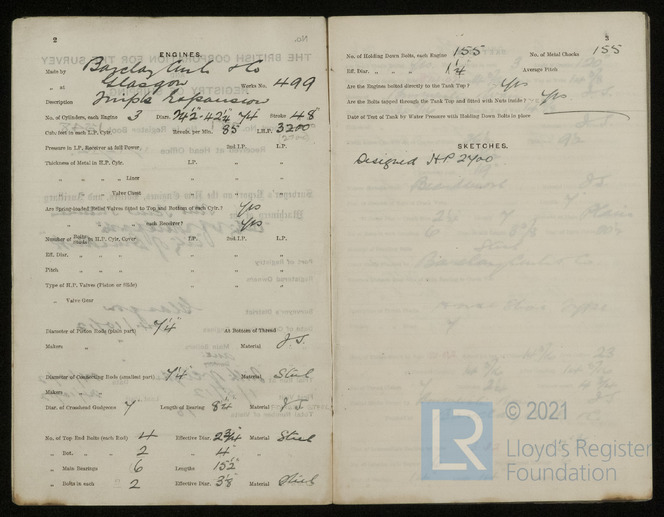 2
ENGINES.
Made by Barclay Curle & Co
„ at Glasgow Works No. 499
Description Triple Expansion
No. of Cylinders, each Engine 3 Diars. 74 Stroke 48
Cub. feet in each L.P. Cylr. Revols. per Min. 85 I.H.P. 3200
Pressure in I.P. Receiver at full Power 2nd I.P. L.P.
Thickness of Metal in H.P. Cylr. I.P. „ „
„ „ Liner „ „ „
„ „ Valve Chest „ „ „
Are Spring-loaded Relief Valves fitted to Top and Bottom of each Cylr.? Yes
„ „ „ each Receiver? Yes
Number of Bolts Studs in H.P. Cylr. Cover I.P. 2nd I.P. L.P.
Eff. Diar. „ „ „ „
Pitch „ „ „ „
Type of H.P. Valves (Piston or Slide)
„ Valve Gear
Diameter of Piston Rods (plain part) 7¼ At Bottom of Thread
Makers Material I.S.
Diameter of Connecting Rods (smallest part) 7¼ Material Steel
Makers
Diar. of Crosshead Gudgeons 7 Length of Bearing 8¼ Material I.S.
No. of Top End Bolts (each Rod) 4 Effective Diar. Material Steel
„ Bot. „ 2 „ 4 „
„ Main Bearings 6 Lengths 15½
„ Bolts in each 2 Effective Diar. Material Steel
3
No. of Holding Down Bolts, each Engine 155 No. of Metal Chocks 155
Eff. Diar. „ „ 1¼ Average Pitch
Are the Engines bolted directly to the Tank Top? Yes
Are the Bolts tapped through the Tank Top and fitted with Nuts inside? Yes
Date of Test of Tank by Water Pressure with Holding Down Bolts in place
SKETCHES.
Designed HP 2700
LR
© 2021
Lloyd's Register
Foundation